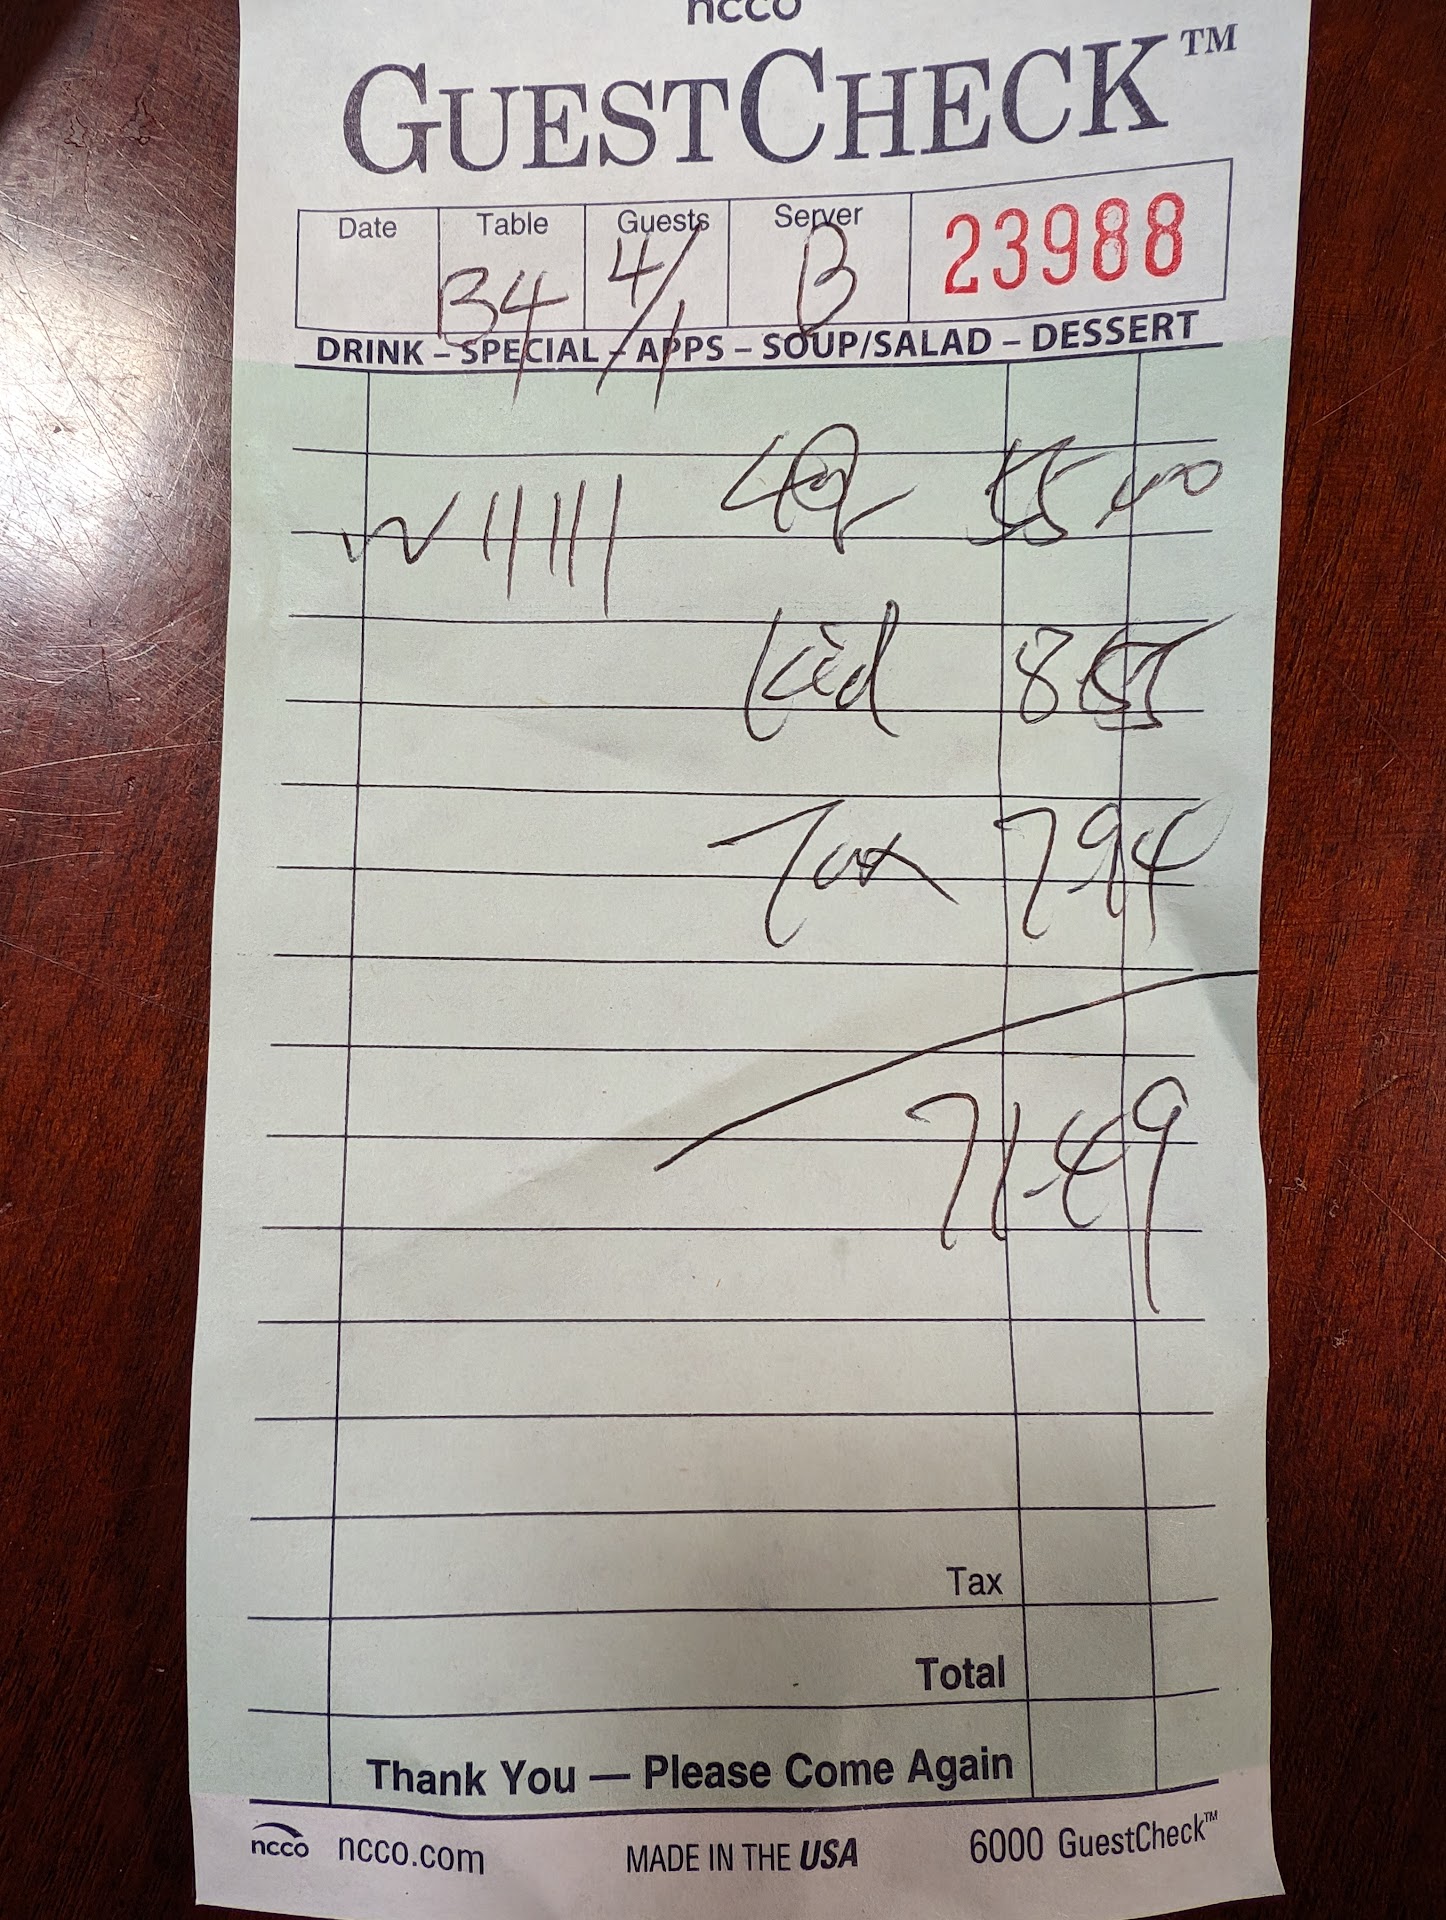 ncco
GUESTCHECK™
Date Table Guests Server
B4 4/1 B 23988
DRINK – SPECIAL – APPS – SOUP/SALAD – DESSERT
55.00
W 11111
Kid 8.55
Tax 7.94
71.49
Tax
Total
Thank You — Please Come Again
ncco ncco.com MADE IN THE USA 6000 GuestCheck™